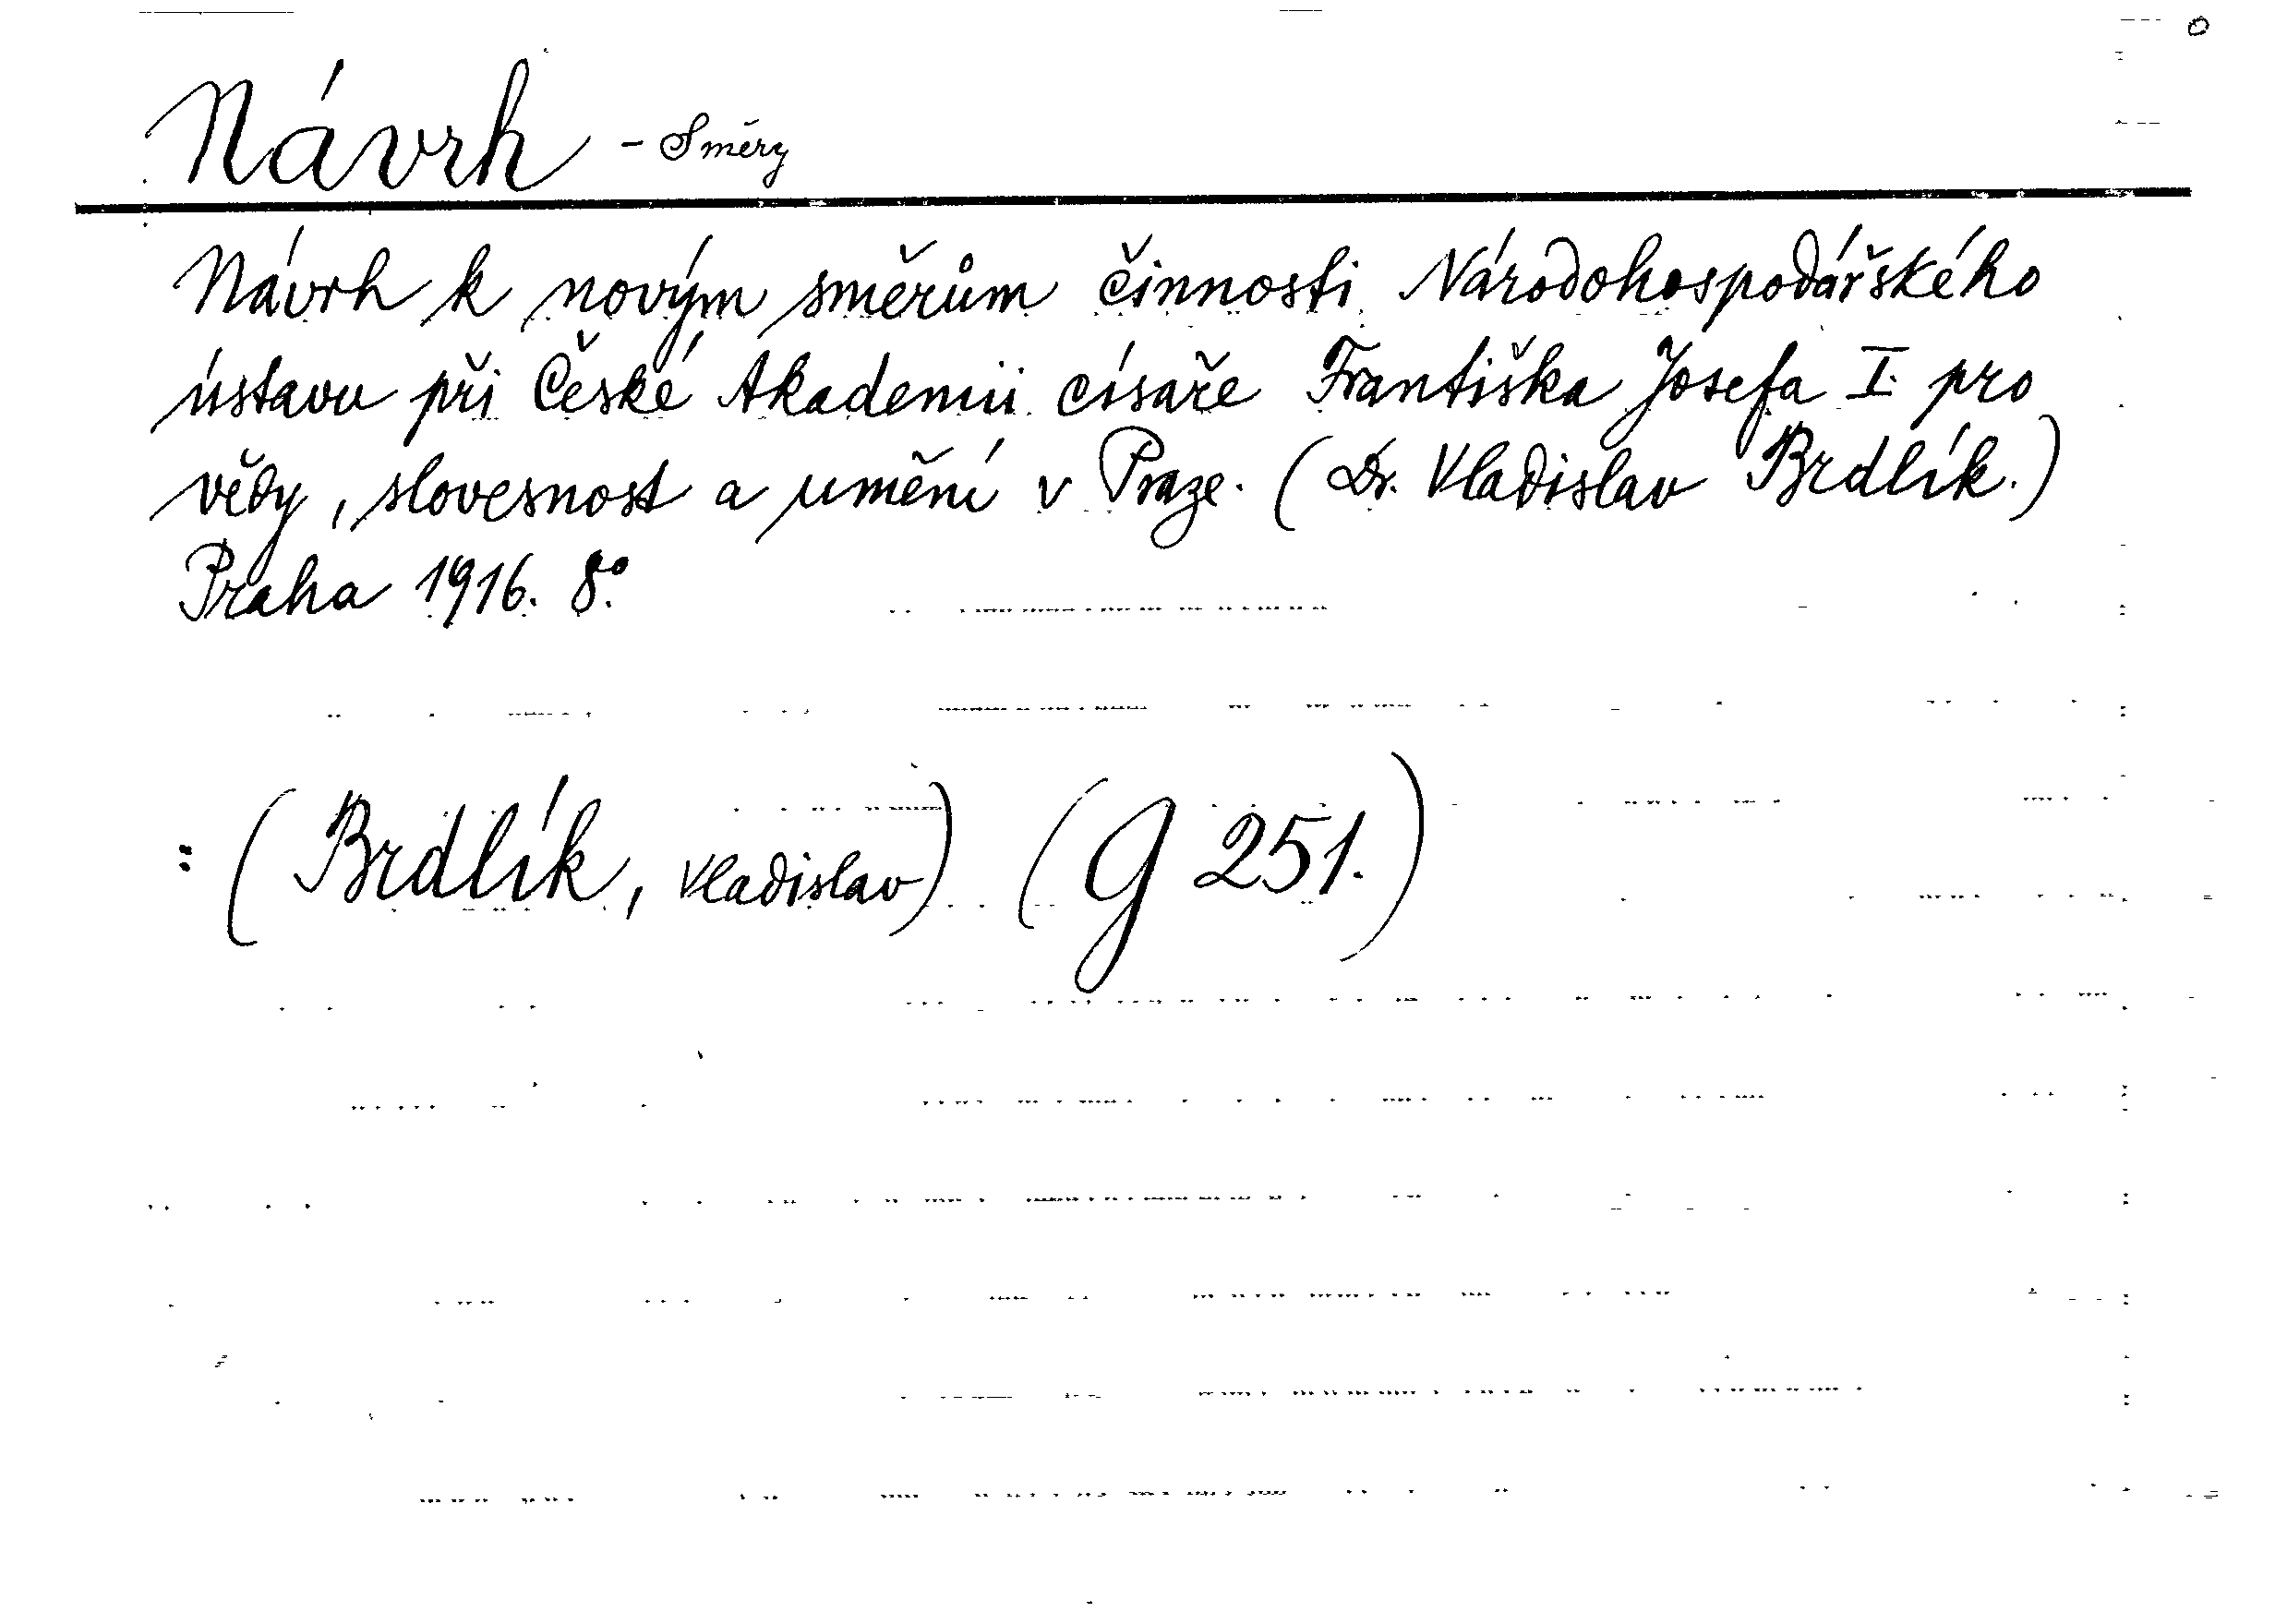 Návrh - Směry
Návrh k novým směrům činnosti Národohospodářského
ústavu při České Akademii císaře Františka Josefa I. pro
vědy, slovesnost a umění v Praze. (Dr. Vladislav Brdlík.)
Praha 1916. 8°.
: (Brdlík, Vladislav) (G 251.)